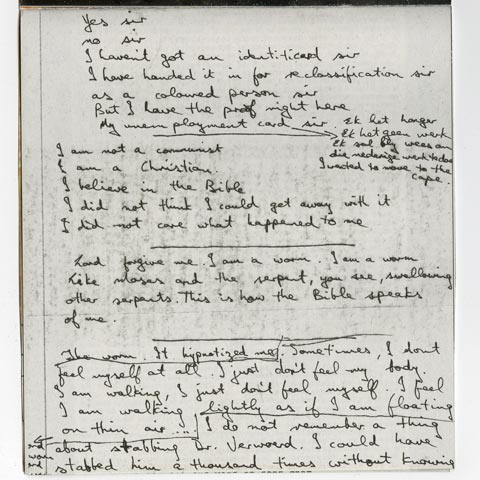 Yes sir
no sir
I haven't got an identiticard sir
I have handed it in for reclassification sir
as a coloured person sir
But I have the proof right here
My unemployment card sir
Ek het honger
Ek het geen werk
Ek sal bly wees om
die nederige werk te doen
I wanted to move to the
Cape.
I am not a communist
I am a Christian.
I believe in the Bible
I did not think I could get away with it
I did not care what happened to me
Lord forgive me. I am a worm. I am a worm
Like Moses and the serpent, you see, swallowing
other serpents. This is how the Bible speaks
of me.
The worm. It hypnotized me. Sometimes, I dont
feel myself at all. I just don't feel my body.
I am walking, I just don't feel myself. I feel
I am walking lightly as if I am floating
on thin air.... I do not remember a thing
about stabbing Dr. Verwoerd. I could have
stabbed him a thousand times without knowing